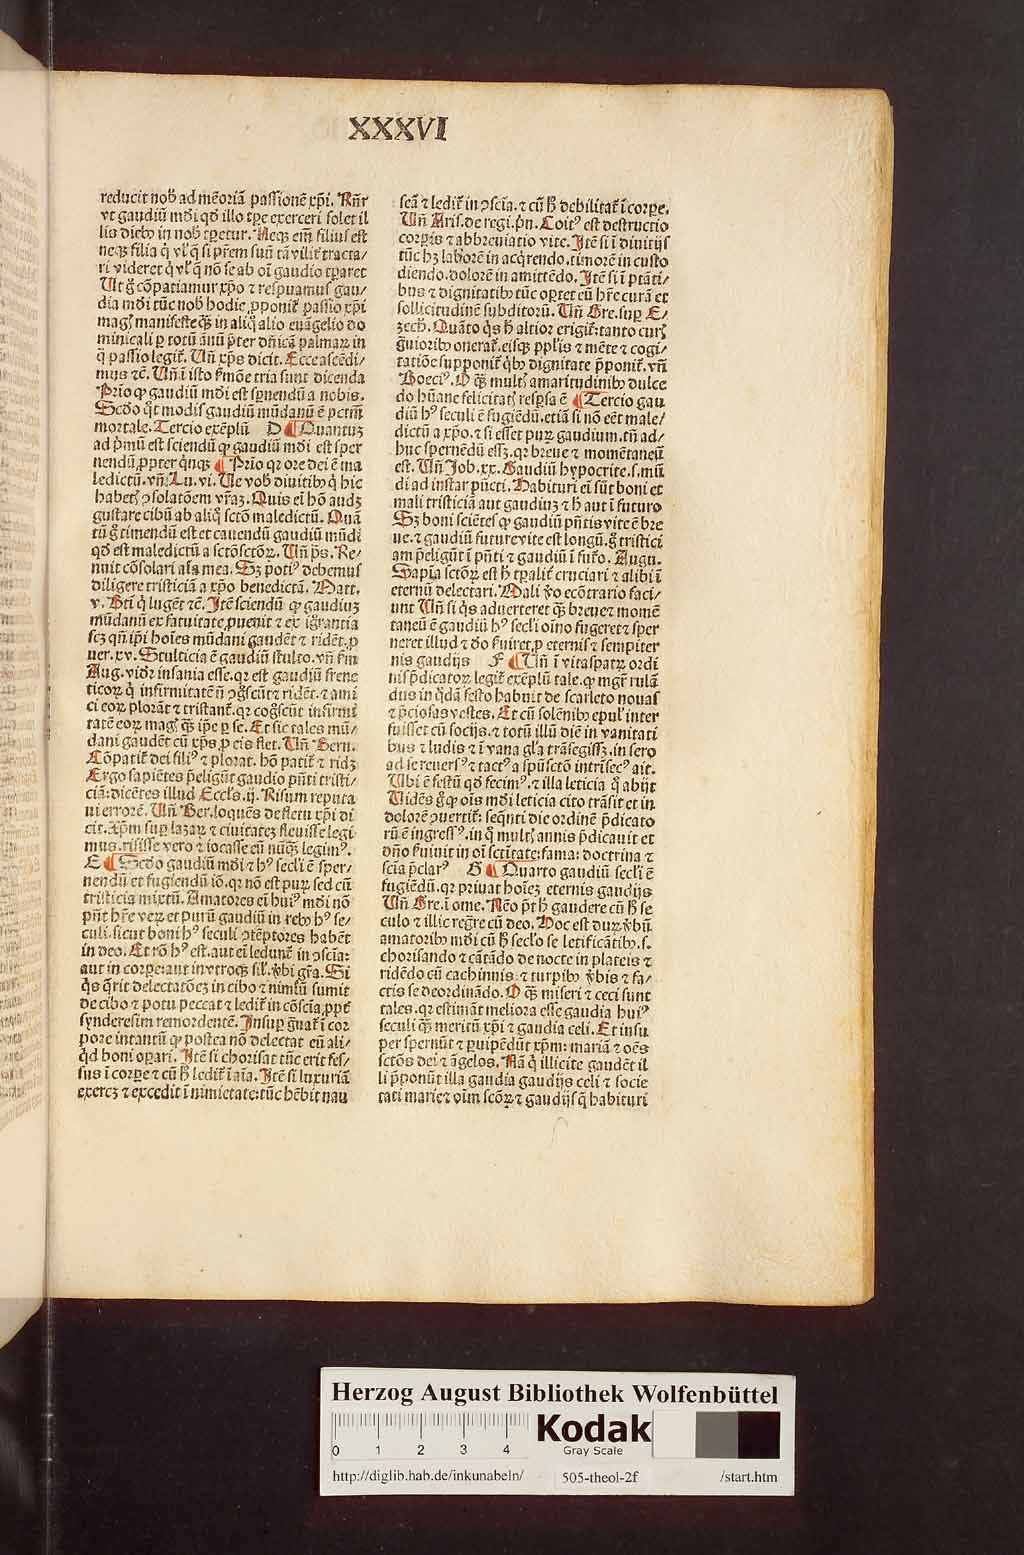 XXXVI
reducit nob̃ ad mẽoriã passionẽ xp̃i. Rñr
vt gaudiũ mõi qđ illo tp̃e exerceri solet il
lis dieb9 in nob̃ tp̃etur. Neqz em̃ filius est
neqz filia q̃ vl' q̃ si pr̃em suũ tã vilit̃ tracta/
ri videret q̃ vl' q̃ nõ se ab oĩ gaudio tp̃aret
Ut g̃ cõpatiamur xp̃o ⁊ respuamus gau/
dia mõi tũc nob̃ hodie ꝓponit̃ passio xp̃i
mag̃ manifeste qz̃ in aliq̃ alio euãgelio do
minicali ꝑ totũ ãnũ p̃ter dñicã palmaꝝ in
q̃ passio legit̃. Uñ xp̃s dicit. Ecce ascẽdi/
mus ⁊c̃. Uñ ĩ isto ẜmõe tria sunt dicenda
Prĩo ꝙ gaudiũ mõi est sp̃nendũ a nobis.
Scđo q̃t modis gaudiũ mũdanũ ẽ pctm̃
mortale. Tercio exẽplũ D ¶ Quantuz
ad p̃mũ est sciendũ ꝙ gaudiũ mõi est sper
nendũ ꝓpter q̃nqz ¶ Prĩo qꝛ ore dei ẽ ma
ledictũ. vñ: Lu. vi. Ue vob̃ diuitib9 q̃ hic
habet̃ ↄsolatõem vr̃az. Quis eĩ hõ audz
gustare cibũ ab aliq̃ sctõ maledictũ. Quã
tũ g̃ timendũ est et cauendũ gaudiũ mũdi
qđ est maledictũ a sctõ sctõꝝ. Uñ p̃s. Re/
nuit cõsolari aĩa mea. Sz poti9 debemus
diligere tristiciã a xp̃o benedictã. Matt.
v. Bt̃i q̃ lugẽt ⁊c̃. Itẽ sciendũ ꝙ gaudiuz
mũdanũ ex fatuitate ꝓuenit ⁊ ex igr̃antia
scz qñ ip̃i hoĩes mũdani gaudẽt ⁊ ridẽt. ꝓ
uer. xv. Stulticia ẽ gaudiũ stulto. vñ ẜm
Aug. vid̃r insania esse. qꝛ est gaudiũ frene
ticoꝝ q̃ infirmitatẽ ñ ↄg̃scũt ⁊ ridẽt. ⁊ ami
ci eoꝝ plorãt ⁊ tristant̃. qꝛ cog̃scũt infirmi
tatẽ eoꝝ mag̃ qz̃ ip̃e ꝑ se. Et sic tales mũ/
dani gaudẽt cũ xp̃s ꝓ eis flet. Uñ Bern.
Cõpatit̃ dei fili9 ⁊ plorat. hõ patit̃ ⁊ ridz
Ergo sapiẽtes p̃eligũt gaudio pñti tristi/
ciã: dicẽtes illud Eccl's. ij. Risum reputa
ui errorẽ. Uñ Ber. loquẽs de fletu xp̃i di
cit. Xp̃m sup lazaꝝ ⁊ ciuitatez fleuisse legi
mus. risisse vero ⁊ iocasse eũ nũqz̃ legim9.
E ¶ Scđo gaudiũ mõi ⁊ h9 secl'i ẽ sper/
nendũ et fugiendũ iõ. qꝛ nõ est puꝝ sed cũ
tristicia mixtũ. Amatores eĩ hui9 mõi nõ
pñt hr̃e veꝝ et purũ gaudiũ in reb9 h9 se/
culi. sicut boni h9 seculi ↄtẽptores habẽt
in deo. Et rõ h9 est. aut eĩ ledunt̃ in ↄscĩa:
aut in corpe: aut in vtroqz sil'. v̾bi gr̃a. Si
q̃s q̃rit delectatõez in cibo ⁊ nimiũ sumit
de cibo ⁊ potu peccat ⁊ ledit̃ in cõscĩa ꝓpt̃
synderesim remordentẽ. Insup g̃uat̃ ĩ cor
pore intantũ ꝙ postea nõ delectat eũ ali/
q̃d boni oꝑari. Itẽ si chorisat tũc erit fes/
sus ĩ corpe ⁊ cũ h̃ ledit̃ ĩ aĩa. Itẽ si luxuriã
exercz ⁊ excedit ĩ nimietate: tũc hẽbit nau
seã ⁊ ledit̃ in ↄscĩa. ⁊ cũ h̃ debilitat̃ ĩ corpe.
Uñ Aris. de regi. p̃n. Coit9 est destructio
corpis ⁊ abbreuiatio vite. Itẽ si ĩ diuitijs
tũc hz laborẽ in acq̃rendo. timorẽ in custo
diendo. dolorẽ in amittẽdo. Itẽ si ĩ ptãti/
bus ⁊ dignitatib9 tũc oꝑtet eũ hr̃e curã et
sollicitudinẽ subditorũ. Uñ Gre. sup E/
zech̃. Quãto q̃s h̃ altior erigit̃: tanto curꝝ
g̃uiorib9 onerat̃. eisqz ppl'is ⁊ mẽte ⁊ cogi/
tatiõe supponit̃ q̃b9 dignitate p̃ponit̃. vñ
Boeci9. O qz̃ mult̃ amaritudinib9 dulce
do hũane felicitat̃ resp̃sa ẽ ¶ Tercio gau
diũ h9 seculi ẽ fugiẽdũ. etiã si nõ eẽt male/
dictũ a xp̃o. ⁊ si esset puꝝ gaudium. tñ ad/
huc spernẽdũ eẽt. qꝛ breue ⁊ momẽtaneũ
est. Uñ Job. xx. Gaudiũ hypocrite. s. mũ
di ad instar pũcti. Habituri eĩ sũt boni et
mali tristiciã aut gaudiuz ⁊ h̃ aut ĩ futuro
Sz boni sciẽtes ꝙ gaudiũ pñtis vite ẽ bre
ue. ⁊ gaudiũ future vite est longũ. g̃ tristici
am p̃eligũt ĩ pñti ⁊ gaudiũ ĩ fut̃o. Augu.
Sapĩa sctõꝝ est h̃ tp̃alit̃ cruciari ⁊ alibi ĩ
eternũ delectari. Mali v̾o ecõtrario faci/
unt Uñ si q̃s aduerteret qz̃ breue ⁊ momẽ
taneũ ẽ gaudiũ h9 secl'i oĩno fugeret ⁊ sper
neret illud ⁊ đo ẜuiret ꝓ eternis ⁊ sempiter
nis gaudijs F ¶ Uñ ĩ vitaspatꝝ ordi
nis p̃dicatoꝝ legit̃ exẽplũ tale. ꝙ mgr̃ rulã
dus in q̃dã festo habuit de scarleto nouas
⁊ p̃ciosas vestes. Et cũ solẽnib9 epul' inter
fuisset cũ socijs. ⁊ totũ illũ diẽ in vanitati
bus ⁊ ludis ⁊ ĩ vana gl'a trãsegissz. in sero
ad se reuers9 ⁊ tact9 a spũsctõ intrĩsec9 ait.
Ubi ẽ festũ qđ fecim9. ⁊ illa leticia q̃ abijt
Uidẽs g̃ ꝙ oĩs mõi leticia cito trãsit et in
dolorẽ ↄuertit̃: seq̃nti die ordinẽ p̃dicato
rũ ẽ ingress9. in q̃ mult̃ annis p̃dicauit et
dño ẜuiuit in oĩ sctĩtate: fama: doctrina ⁊
scĩa p̃clar9 G ¶ Quarto gaudiũ secl'i ẽ
fugiẽdũ. qꝛ priuat hoĩez eternis gaudijs
Uñ Gre. ĩ ome. Nẽo põt h̃ gaudere cũ h̃ se
culo ⁊ illic regn̾re cũ deo. Hoc est duꝝ v̾bũ
amatorib9 mõi cũ h̃ secl'o se letificãtib9. s.
chorisando ⁊ cãtãdo de nocte in plateis ⁊
ridẽdo cũ cachinnis. ⁊ turpib9 v̾bis ⁊ fa/
ctis se deordinãdo. O qz̃ miseri ⁊ ceci sunt
tales. qꝛ estimãt meliora esse gaudia hui9
seculi qz̃ meritũ xp̃i ⁊ gaudia celi. Et insu
per spernũt ⁊ ꝑuipẽdũt xp̃m: mariã ⁊ oẽs
sctõs dei ⁊ ãgelos. Nã q̃ illicite gaudẽt il
li p̃ponũt illa gaudia gaudijs celi ⁊ socie
tati marie ⁊ oĩm scõꝝ ⁊ gaudijs q̃ habituri
Herzog August Bibliothek Wolfenbüttel
0 1 2 3 4
Kodak
Gray Scale
http://diglib.hab.de/inkunabeln/ 505-theol-2f /start.htm